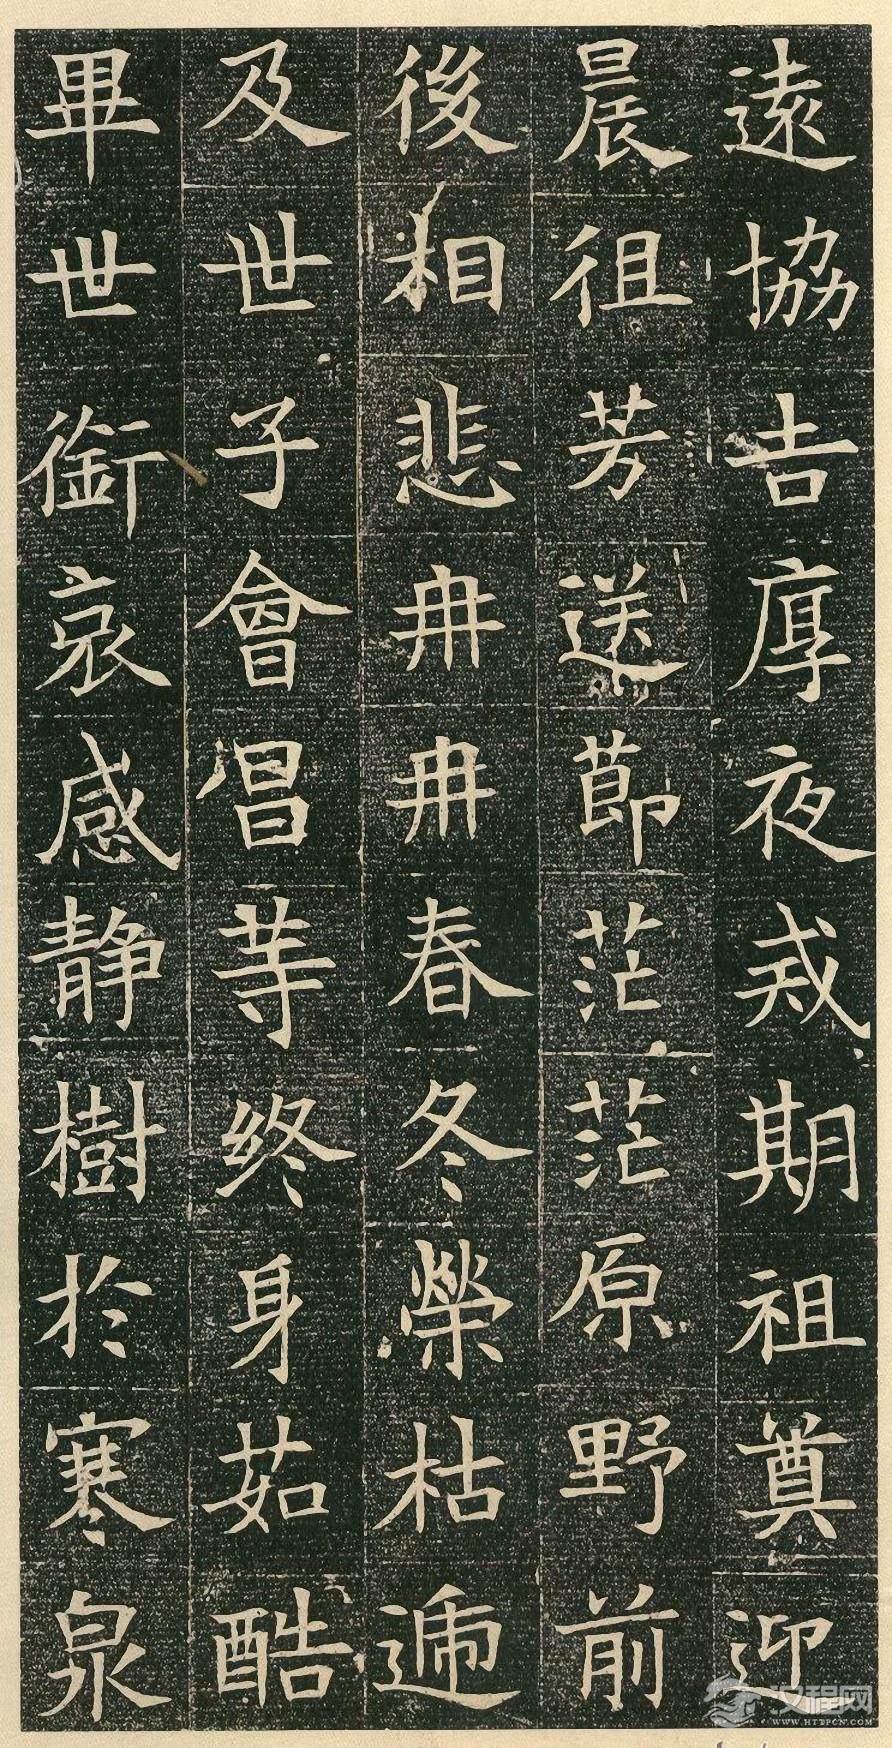 遠協吉厚夜戒期祖奠迎
晨徂芳送節茫茫原野前
後相悲冉冉春冬榮枯遞
及世子會昌等終身茹酷
畢世銜哀感静樹於寒泉
汉程网
WWW.HTTPCN.COM